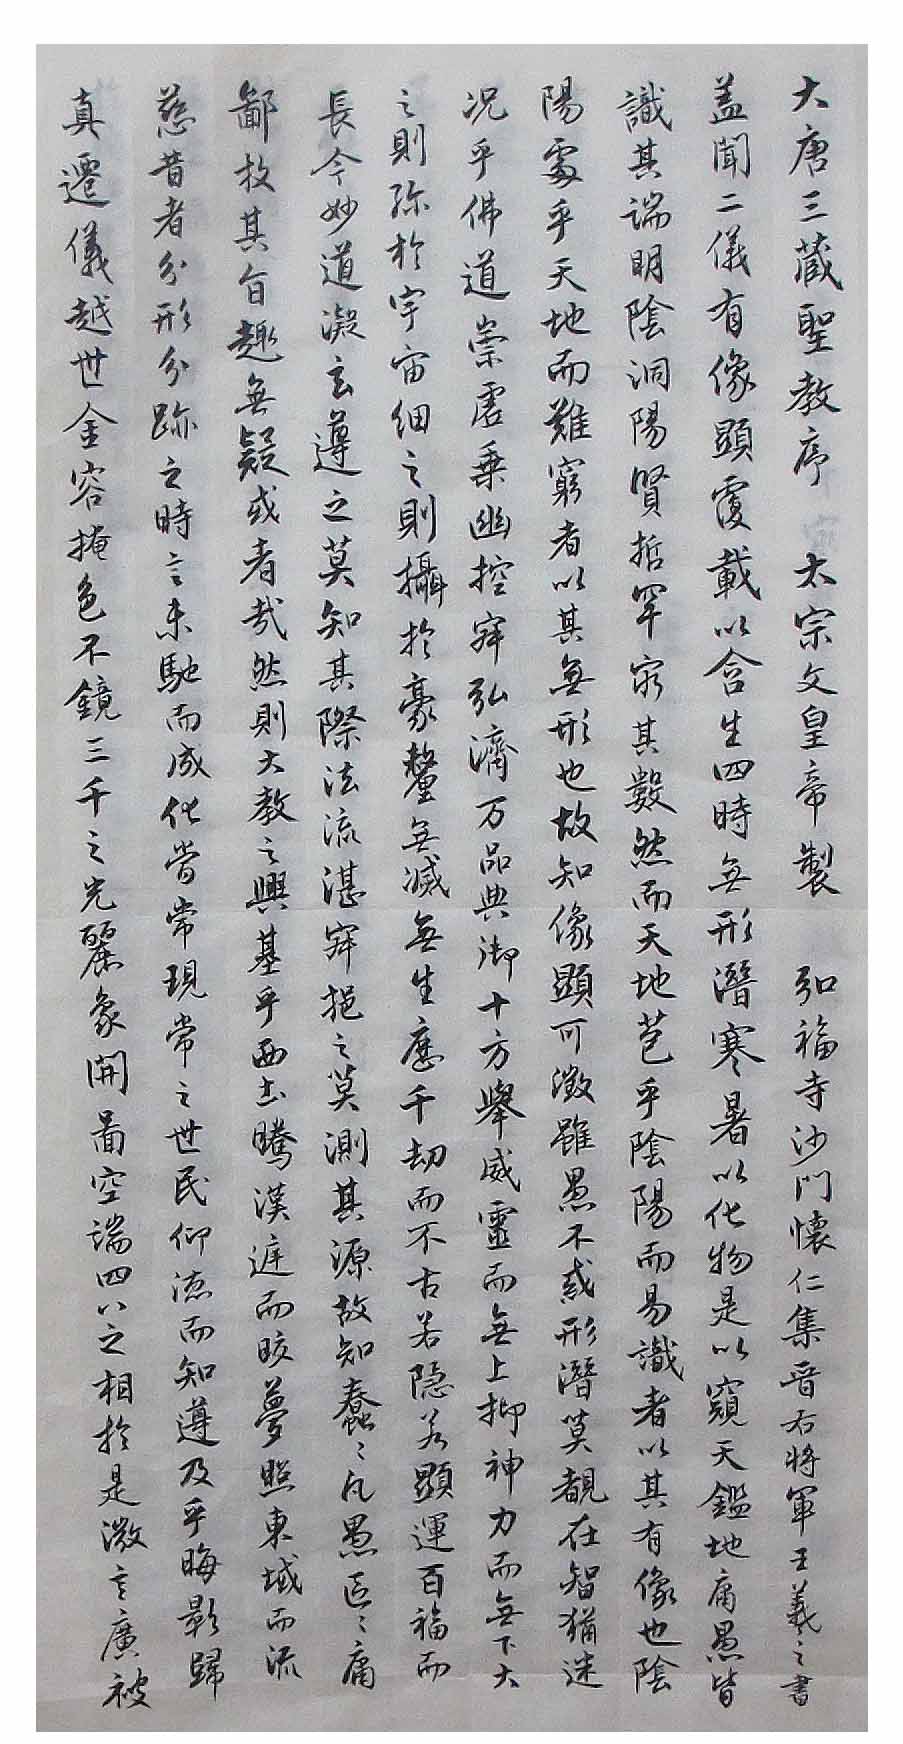 大唐三藏聖教序 太宗文皇帝製 弘福寺沙門懷仁集晋右將軍王羲之書
盖聞二儀有像顯覆載以含生四時無形潛寒暑以化物是以窺天鑑地庸愚皆
識其端明陰洞陽賢哲罕窮其數然而天地苞乎陰陽而易識者以其有像也陰
陽處乎天地而難窮者以其無形也故知像顯可徵雖愚不惑形潛莫覩在智猶迷
况乎佛道崇虛乗幽控寂弘濟万品典御十方舉威靈而無上抑神力而無下大
之則弥於宇宙細之則攝於豪釐無滅無生歷千劫而不古若隐若顯運百福而
長今妙道凝玄遵之莫知其際法流湛寂挹之莫測其源故知蠢〻凡愚區〻庸
鄙投其旨趣無疑或者哉然則大教之興基乎西土騰漢庭而皎夢照東域而流
慈昔者分形分跡之時言未馳而成化當常現常之世民仰德而知遵及乎晦影歸
真遷儀越世金容掩色不鏡三千之光麗象開圖空端四八之相於是微言廣被